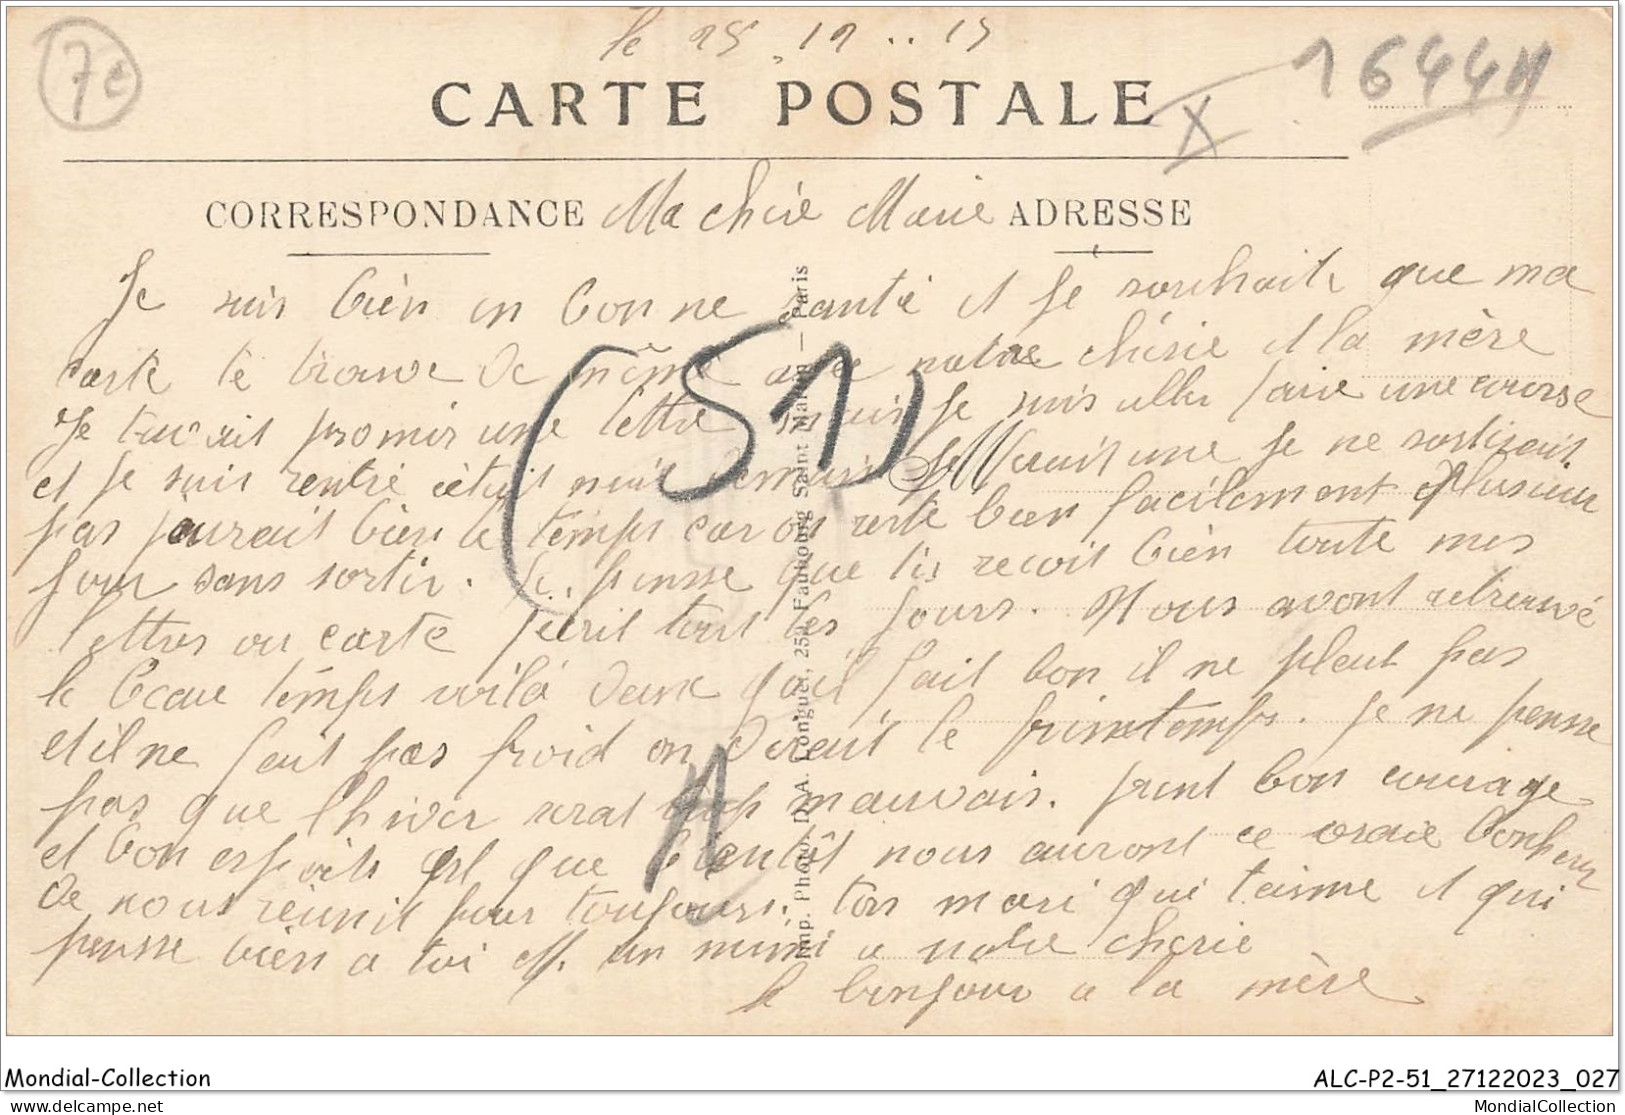 le 25.12..15
7€
16441
X
CARTE POSTALE
CORRESPONDANCE Ma chère Marie ADRESSE
Je suis bien en bonne santé et je souhaite que ma
carte te trouve de même avec notre chérie et la mère
Je tavait promis une lettre mais je suis aller faire une course
et je suis rentré était nuit demain je serait une je ne sortirait
pas jaurait bien le temps car on reste bien facilement plusieur
jour sans sortir. je pensse que tu recoit bien toute mes
lettres ou carte jecrit tout les jours. Nous avont retrouvé
le beau temps voilà deux quil fait bon il ne pleut pas
et il ne fait pas froid on dirait le printemps. je ne pensse
pas que lhiver serat trop mauvais. prent bon courage
et bon espoirts que bientôt nous auront ce vraie bonheur
de nous réunir pour toujours. ton mari qui taime et qui
pensse bien a toi M. un mimi a notre cherie
le bonjour a la mère
(51)
1
Imp. Photo D. A. Longuet, 250, Faubourg Saint Martin — Paris
Mondial-Collection
ALC-P2-51_27122023_027
www.delcampe.net/fr/store/Mondial-Collection
MondialCollection